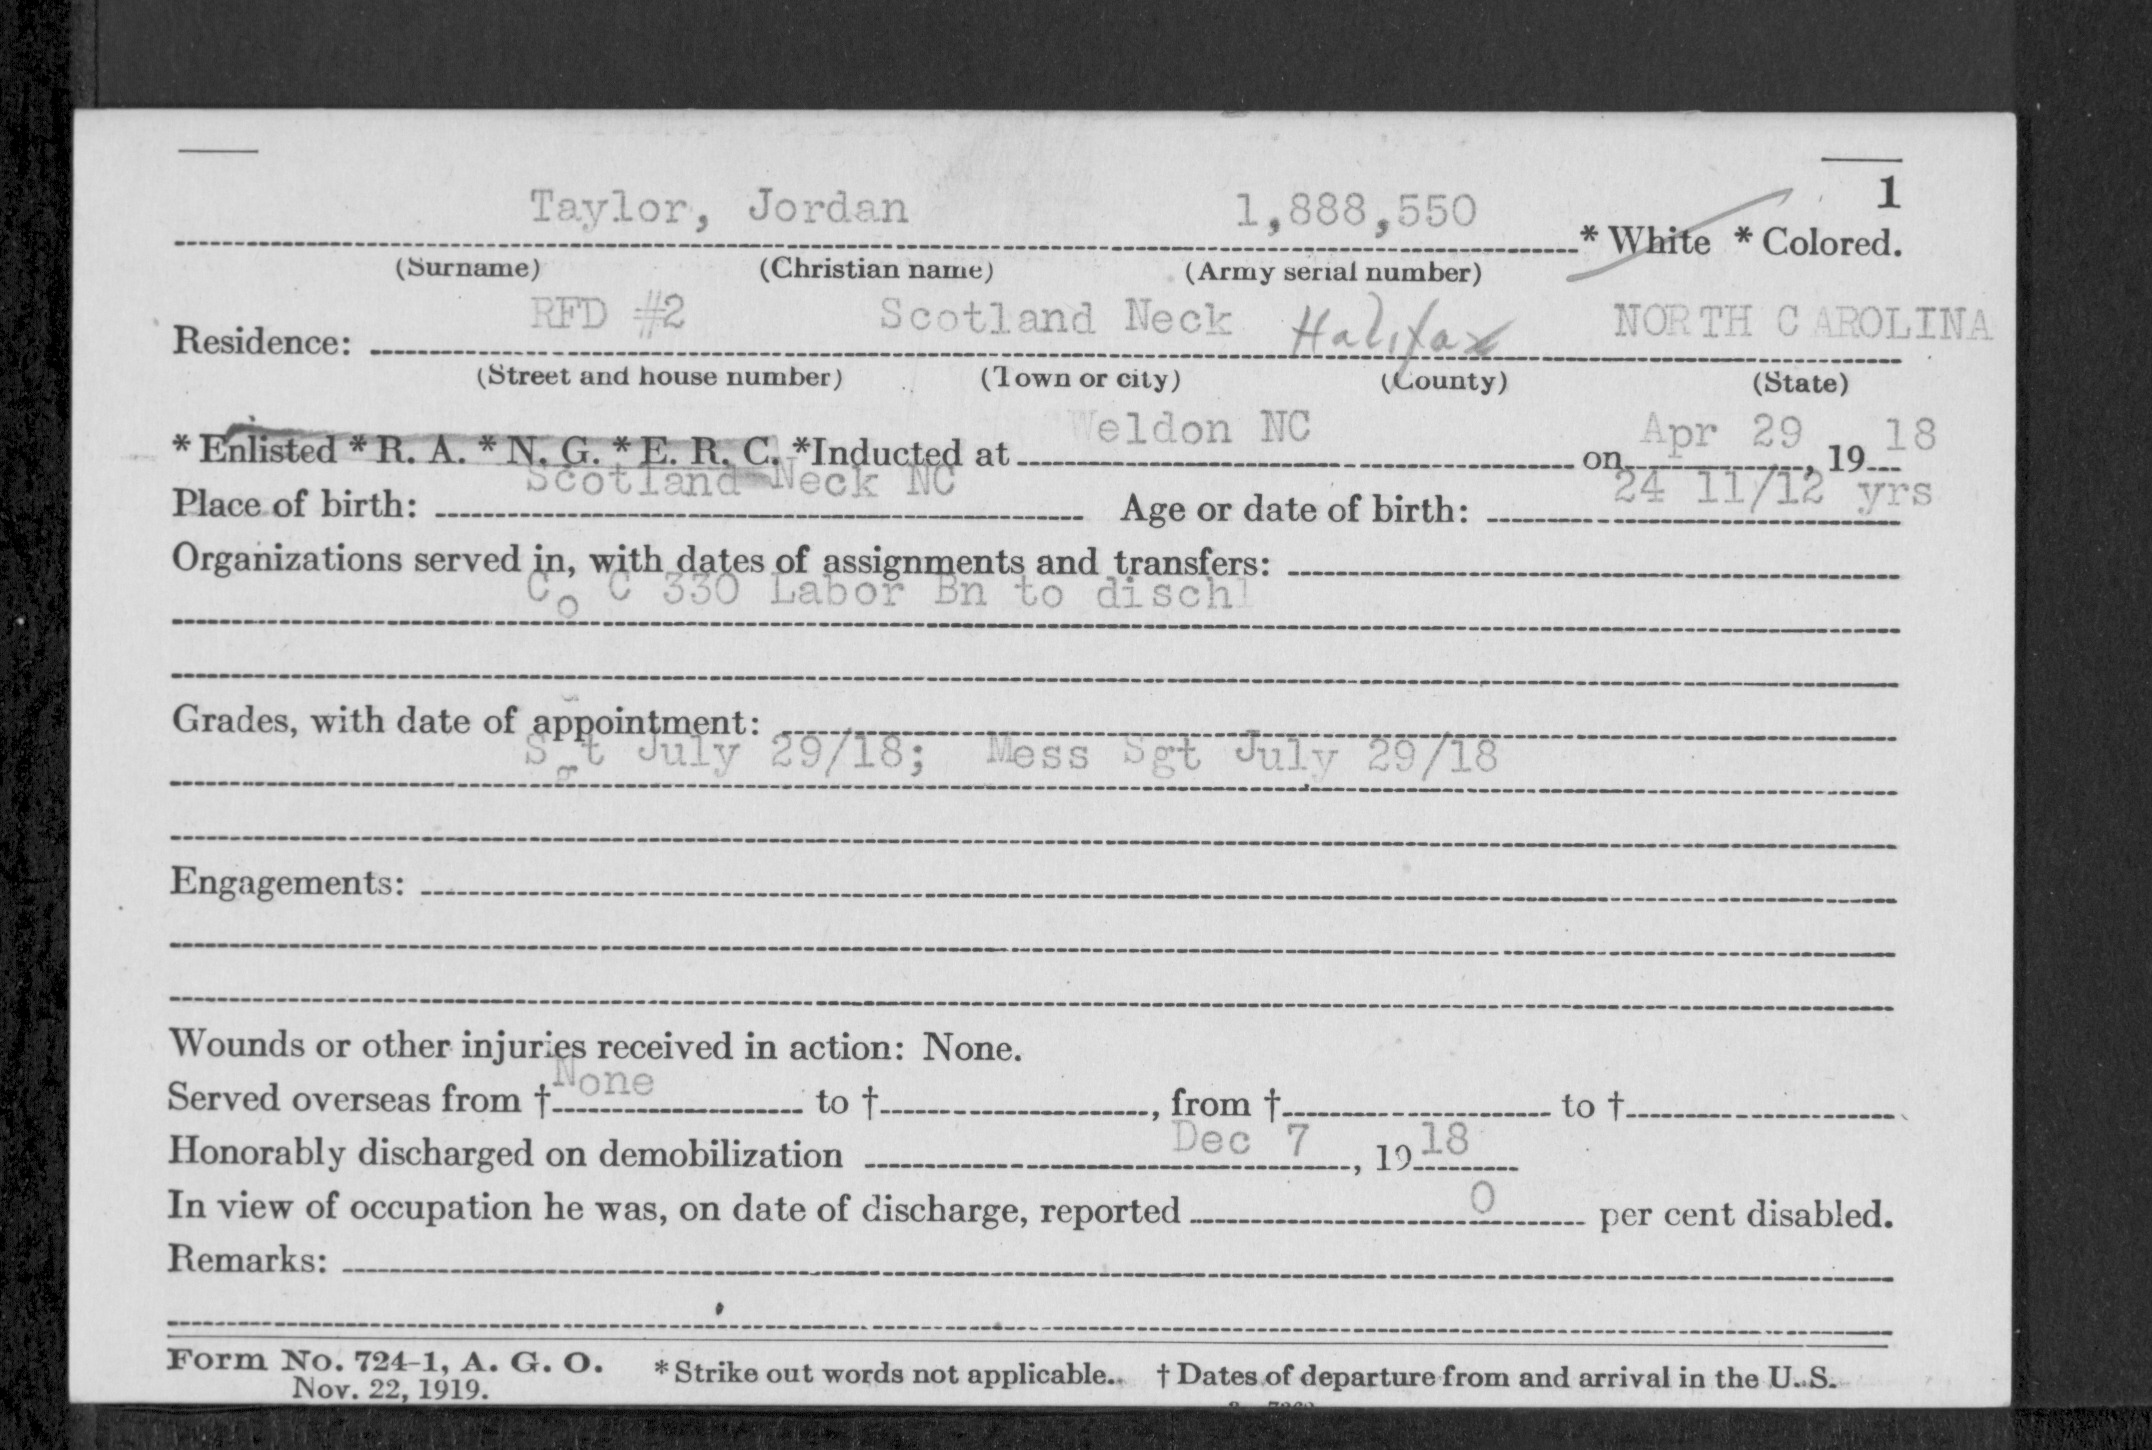 1
Taylor, Jordan 1,888,550 * White * Colored.
(Surname) (Christian name) (Army serial number)
Residence: RFD #2 Scotland Neck Halifax NORTH CAROLINA
(Street and house number) (Town or city) (County) (State)
* Enlisted * R. A. * N. G. * E. R. C. *Inducted at Weldon NC on Apr 29, 1918
Place of birth: Scotland Neck NC Age or date of birth: 24 11/12 yrs
Organizations served in, with dates of assignments and transfers:
Co C 330 Labor Bn to disch
Grades, with date of appointment:
Sgt July 29/18; Mess Sgt July 29/18
Engagements:
Wounds or other injuries received in action: None.
Served overseas from † None to †, from † to †
Honorably discharged on demobilization Dec 7, 1918
In view of occupation he was, on date of discharge, reported 0 per cent disabled.
Remarks:
Form No. 724-1, A. G. O. * Strike out words not applicable. † Dates of departure from and arrival in the U. S.
Nov. 22, 1919.